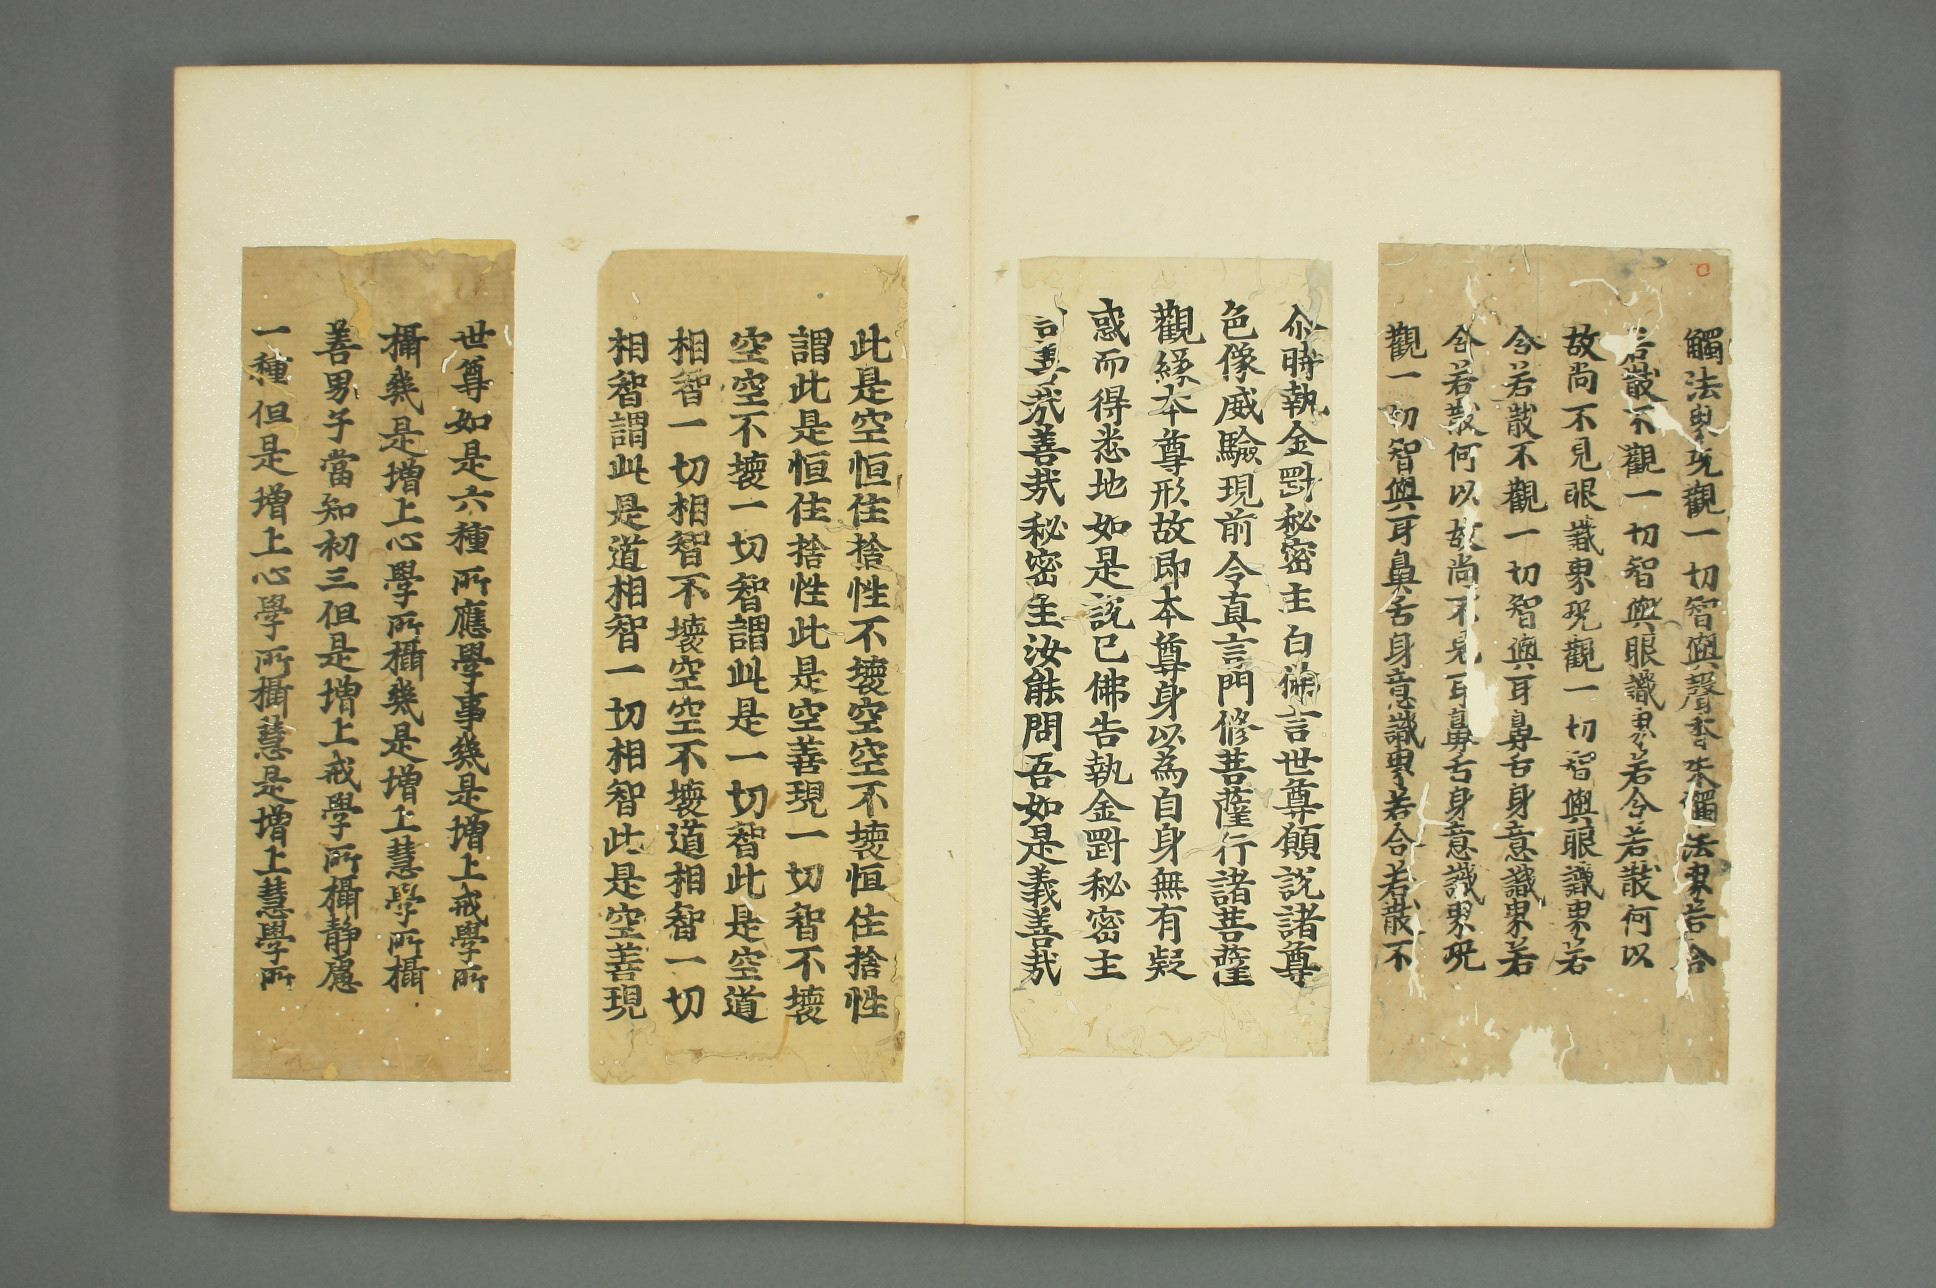 觸法界況觀一切智與聲香味觸法界若合
若散不觀一切智與眼識界若合若散何以
故尚不見眼識界況觀一切智與眼識界若
合若散不觀一切智與耳鼻舌身意識界若
合若散何以故尚不見耳鼻舌身意識界況
觀一切智與耳鼻舌身意識界若合若散不
尒時執金剛秘密主白佛言世尊願說諸尊
色像威驗現前令真言門修菩薩行諸菩薩
觀緣本尊形故即本尊身以為自身無有疑
惑而得悉地如是說已佛告執金剛秘密主
善哉善哉秘密主汝能問吾如是義善哉
此是空恒住捨性不壞空空不壞恒住捨性
謂此是恒住捨性此是空善現一切智不壞
空空不壞一切智謂此是一切智此是空道
相智一切相智不壞空空不壞道相智一切
相智謂此是道相智一切相智此是空善現
世尊如是六種所應學事幾是增上戒學所
攝幾是增上心學所攝幾是增上慧學所攝
善男子當知初三但是增上戒學所攝靜慮
一種但是增上心學所攝慧是增上慧學所